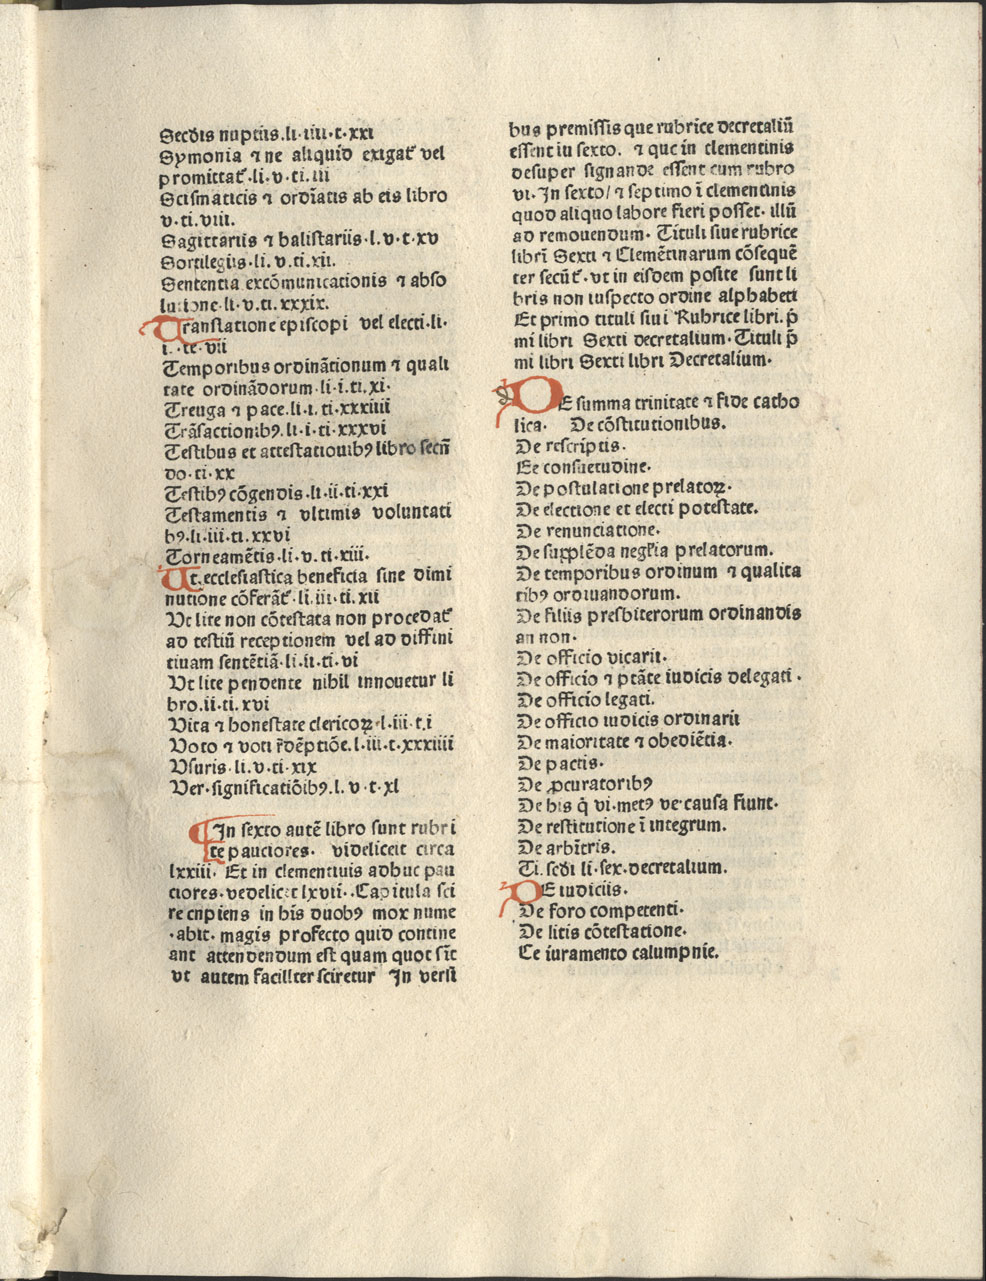 Secũdis nuptiis.li.iiii.t.xxi
Symonia ⁊ ne aliquid exigat᷑ vel
promittat᷑.li.v.ti.iii
Scismaticis ⁊ ordīatis ab eis libro
v.ti.viii.
Sagittariis ⁊ balistariis.l.v.t.xv
Sortilegiis.li.v.ti.xii.
Sententia excōmunicationis ⁊ abso
lutione.li.v.ti.xxxix.
Translatione episcopi vel electi.li.
i..te.vii
Temporibus ordinātionum ⁊ quali
tate ordinādorum.li.i.ti.xi.
Treuga ⁊ pace.li.i.ti.xxxiiii
Trāsactionibꝰ.li.i.ti.xxxvi
Testibus et attestationibꝰ libro secū
do.ti.xx
Testibꝰ cōgendis.li.ii.ti.xxi
Testamentis ⁊ vltimis voluntati
bꝰ.li.iii.ti.xxvi
Torneamētis.li.v.ti.xiii.
Ut.ecclesiastica beneficia sine dimi
nutione cōferāt᷑.li.iii.ti.xii
Vt lite non cōtestata non procedat᷑
ad testiū receptionem vel ad diffini
tiuam sentētiā.li.ii.ti.vi
Vt lite pendente nihil innouetur li
bro.ii.ti.xvi
Vita ⁊ honestate clericoꝝ.l.iii.t.i
Voto ⁊ voti r̄dēptiōe.l.iii.t.xxxiiii
Vsuris.li.v.ti.xix
Ver.significatiōibꝰ.l.v.t.xl
In sexto autē libro sunt rubri
te pauciores. videliceit circa
lxxiii. Et in clementiuis adhuc pau
ciores.vedelicet lxvii..Capitula sci
re cnpiens in his duobꝰ mox nume
.abit. magis profecto quid contine
ant attendendum est quam quot sīt
vt autem faciliter sciretur In versi
bus premissis que rubrice decretaliū
essent iu sexto. ⁊ que in clementinis
desuper signande essent cum rubro
vi.In sexto/ ⁊ septimo ī clementinis
quod aliquo labore fieri posset. illū
ad remouendum. Tituli siue rubrice
librī Sexti ⁊ Clemētinarum cōsequē
ter secūt᷑.vt in eisdem posite sunt li
bris non iuspecto ordine alphabeti
Et primo tituli siui Rubrice libri.p̄
mi libri Sexti decretalium.Tituli p̄
mi libri Sexti libri Decretalium.
DE summa trinitate ⁊ fide catho
lica. De cōstitutionibus.
De rescriptis.
Ee consuetudine.
De postulatione prelatoꝝ.
De electione et electi potestate.
De renunciatione.
De supplēda negl̄ia prelatorum.
De temporibus ordinum ⁊ qualita
tibꝰ ordiuandorum.
De filiis presbiterorum ordinandis
an non.
De officio vicarii.
De officio ⁊ ptāte iudicis delegati.
De officio legati.
De officio iudicis ordinarii
De maioritate ⁊ obediētia.
De pactis.
De ꝓcuratoribꝰ
De his q̄ vi.metꝰ ve.causa fiunt.
De restitutione ī integrum.
De arbītris.
Ti.scdi li.sex.decretalium.
DE iudiciis.
De foro competenti.
De litis cōtestatione.
Ce iuramento calumpnie.